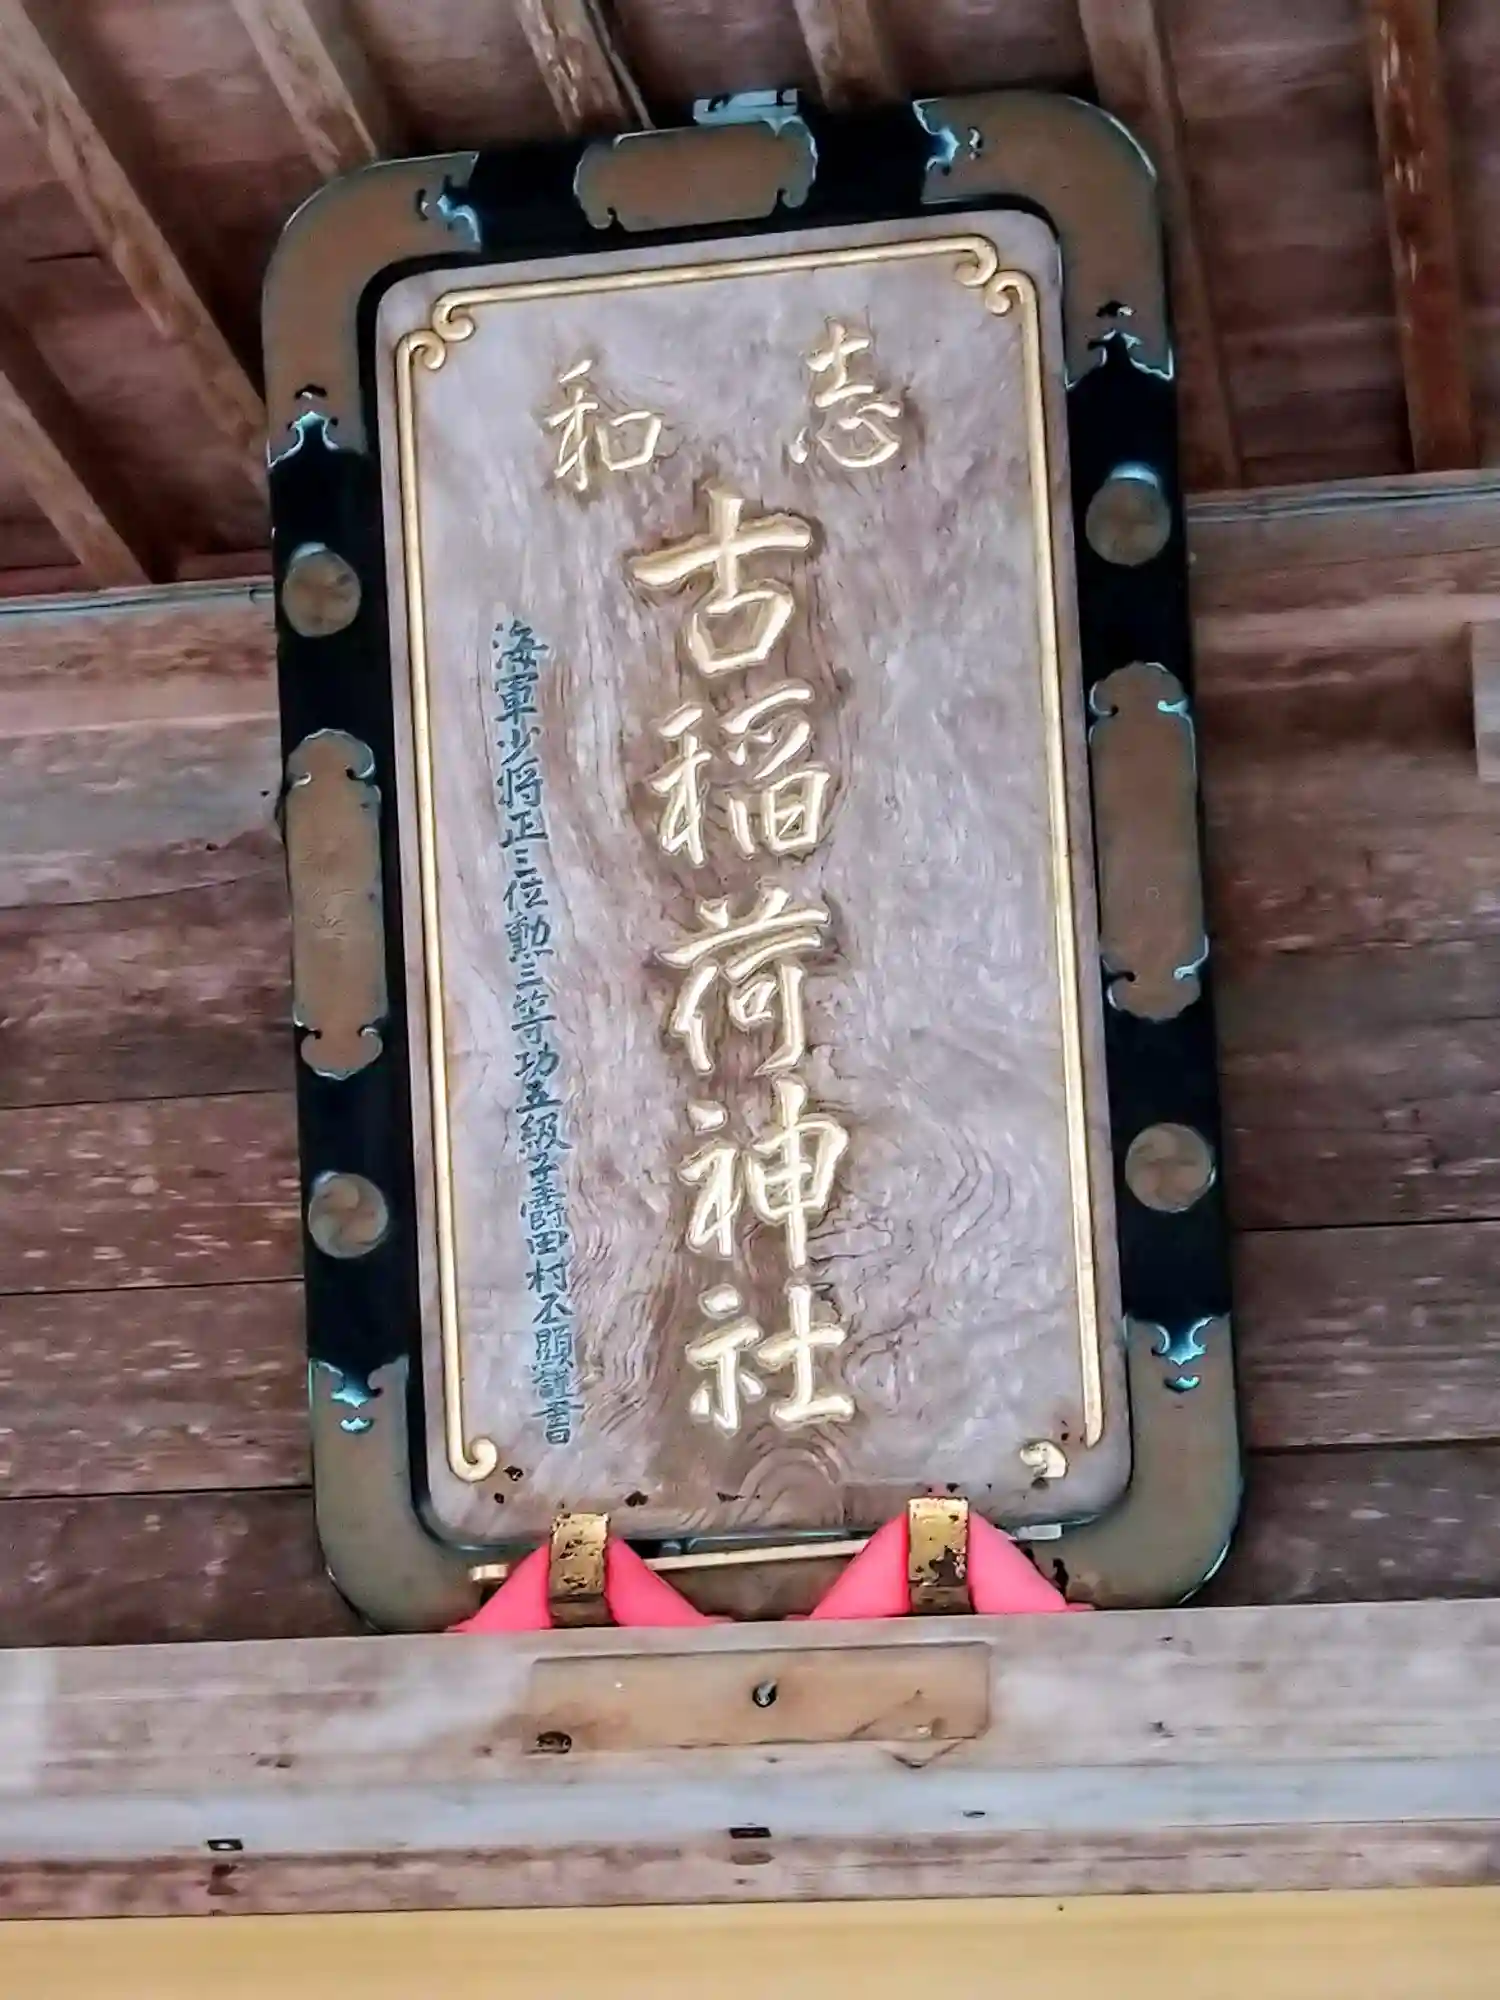 志和
古稲荷神社
海軍少将正三位勲三等功五級子爵田村丕顕謹書